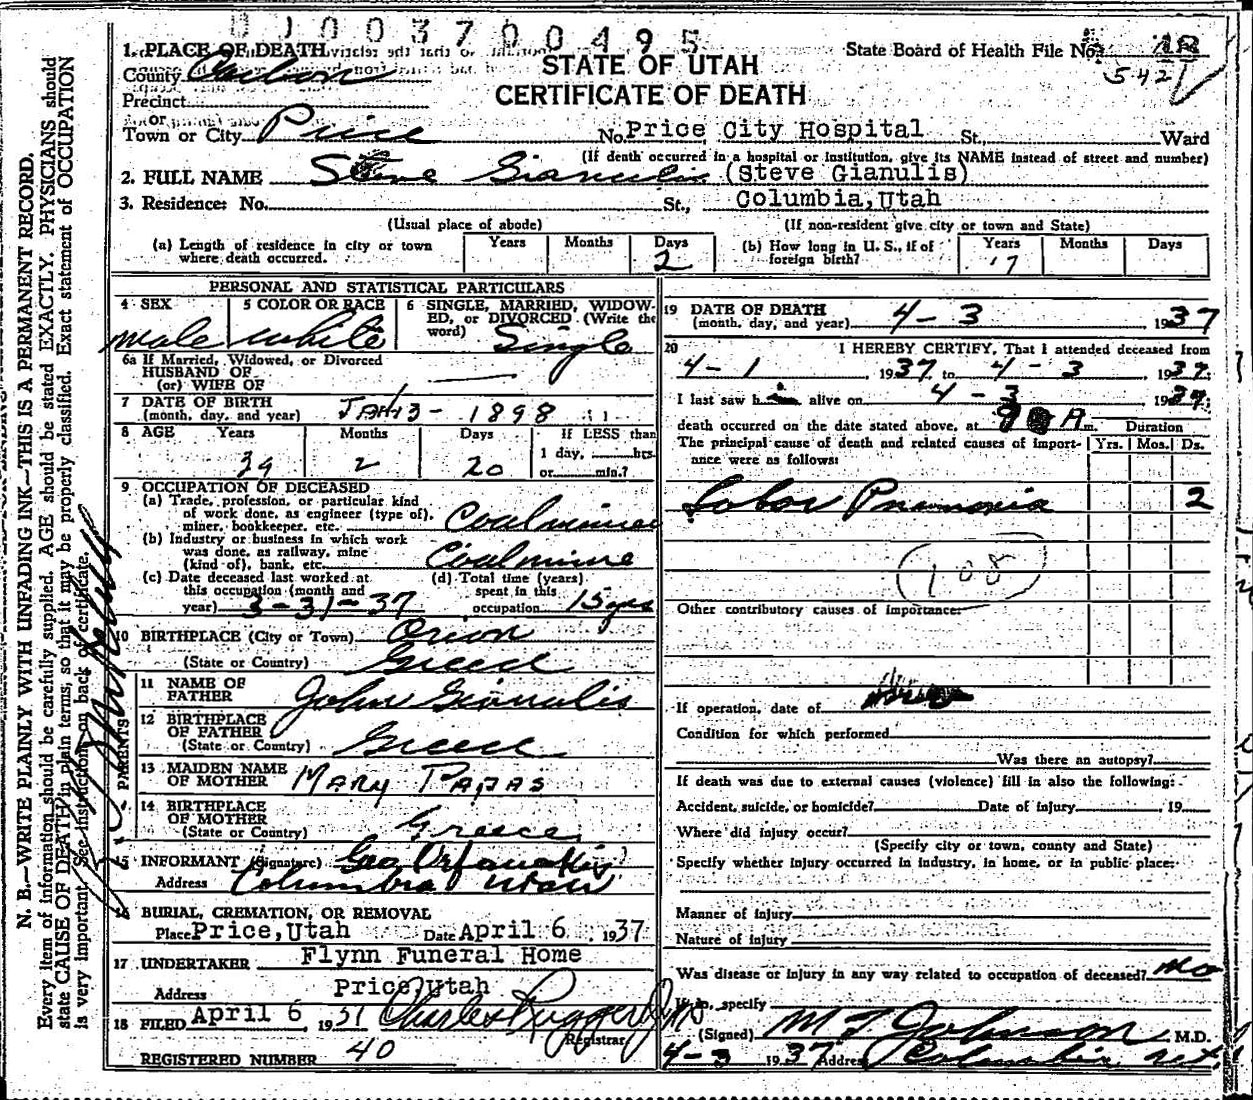 0 0 0 3 7 0 0 4 9 5
1. PLACE OF DEATH
State Board of Health File No.
542
County Carbon
STATE OF UTAH
Precinct
CERTIFICATE OF DEATH
or
Town or City Price No. Price City Hospital St., Ward
(If death occurred in a hospital or institution, give its NAME instead of street and number)
2. FULL NAME Steve Gianulis (Steve Gianulis)
3. Residence: No. St., Columbia, Utah
(Usual place of abode) (If non-resident give city or town and State)
(a) Length of residence in city or town where death occurred. Years Months Days 2
(b) How long in U. S., if of foreign birth? Years 17 Months Days
PERSONAL AND STATISTICAL PARTICULARS
4 SEX 5 COLOR OR RACE 6 SINGLE, MARRIED, WIDOWED, or DIVORCED (Write the word)
male white Single
6a If Married, Widowed, or Divorced
HUSBAND OF
(or) WIFE OF
7 DATE OF BIRTH
(month, day, and year) JAN 13 - 1898
8 AGE Years Months Days If LESS than
1 day, hrs.
39 2 20 or min.?
9 OCCUPATION OF DECEASED
(a) Trade, profession, or particular kind
of work done, as engineer (type of),
miner, bookkeeper, etc. Coalminer
(b) Industry or business in which work
was done, as railway, mine
(kind of), bank, etc. Coalmine
(c) Date deceased last worked at
this occupation (month and
year) 3-31-37
(d) Total time (years)
spent in this
occupation 15 yrs
10 BIRTHPLACE (City or Town)
(State or Country) Greece
PARENTS
11 NAME OF
FATHER John Gianulis
12 BIRTHPLACE
OF FATHER
(State or Country) Greece
13 MAIDEN NAME
OF MOTHER MARY PAPAS
14 BIRTHPLACE
OF MOTHER
(State or Country) Greece
15 INFORMANT (Signature) Geo Orfanakis
Address Columbia Utah
16 BURIAL, CREMATION, OR REMOVAL
Place Price, Utah Date April 6 1937
17 UNDERTAKER Flynn Funeral Home
Address Price, Utah
18 FILED April 6, 1937 Charles Ruggeri Jr
Registrar
REGISTERED NUMBER 40
19 DATE OF DEATH
(month, day, and year) 4-3 1937
20 I HEREBY CERTIFY, That I attended deceased from
4-1, 1937, to 4-3, 1937,
I last saw him alive on 4-3 1937;
death occurred on the date stated above, at 9 A m. Duration
The principal cause of death and related causes of importance were as follows: Yrs. Mos. Ds.
Lobar Pnumonia 2
108
Other contributory causes of importance:
If operation, date of
Condition for which performed
Was there an autopsy?
If death was due to external causes (violence) fill in also the following:
Accident, suicide, or homicide? Date of injury , 19
Where did injury occur?
(Specify city or town, county and State)
Specify whether injury occurred in industry, in home, or in public place:
Manner of injury
Nature of injury
Was disease or injury in any way related to occupation of deceased? no
If so, specify
(Signed) M T Johnson, M.D.
4-3 1937 Address Columbia Ut.
N. B.—WRITE PLAINLY WITH UNFADING INK—THIS IS A PERMANENT RECORD.
Every item of information should be carefully supplied. AGE should be stated EXACTLY. PHYSICIANS should
state CAUSE OF DEATH in plain terms, so that it may be properly classified. Exact statement of OCCUPATION
is very important. See instructions on back of certificate.